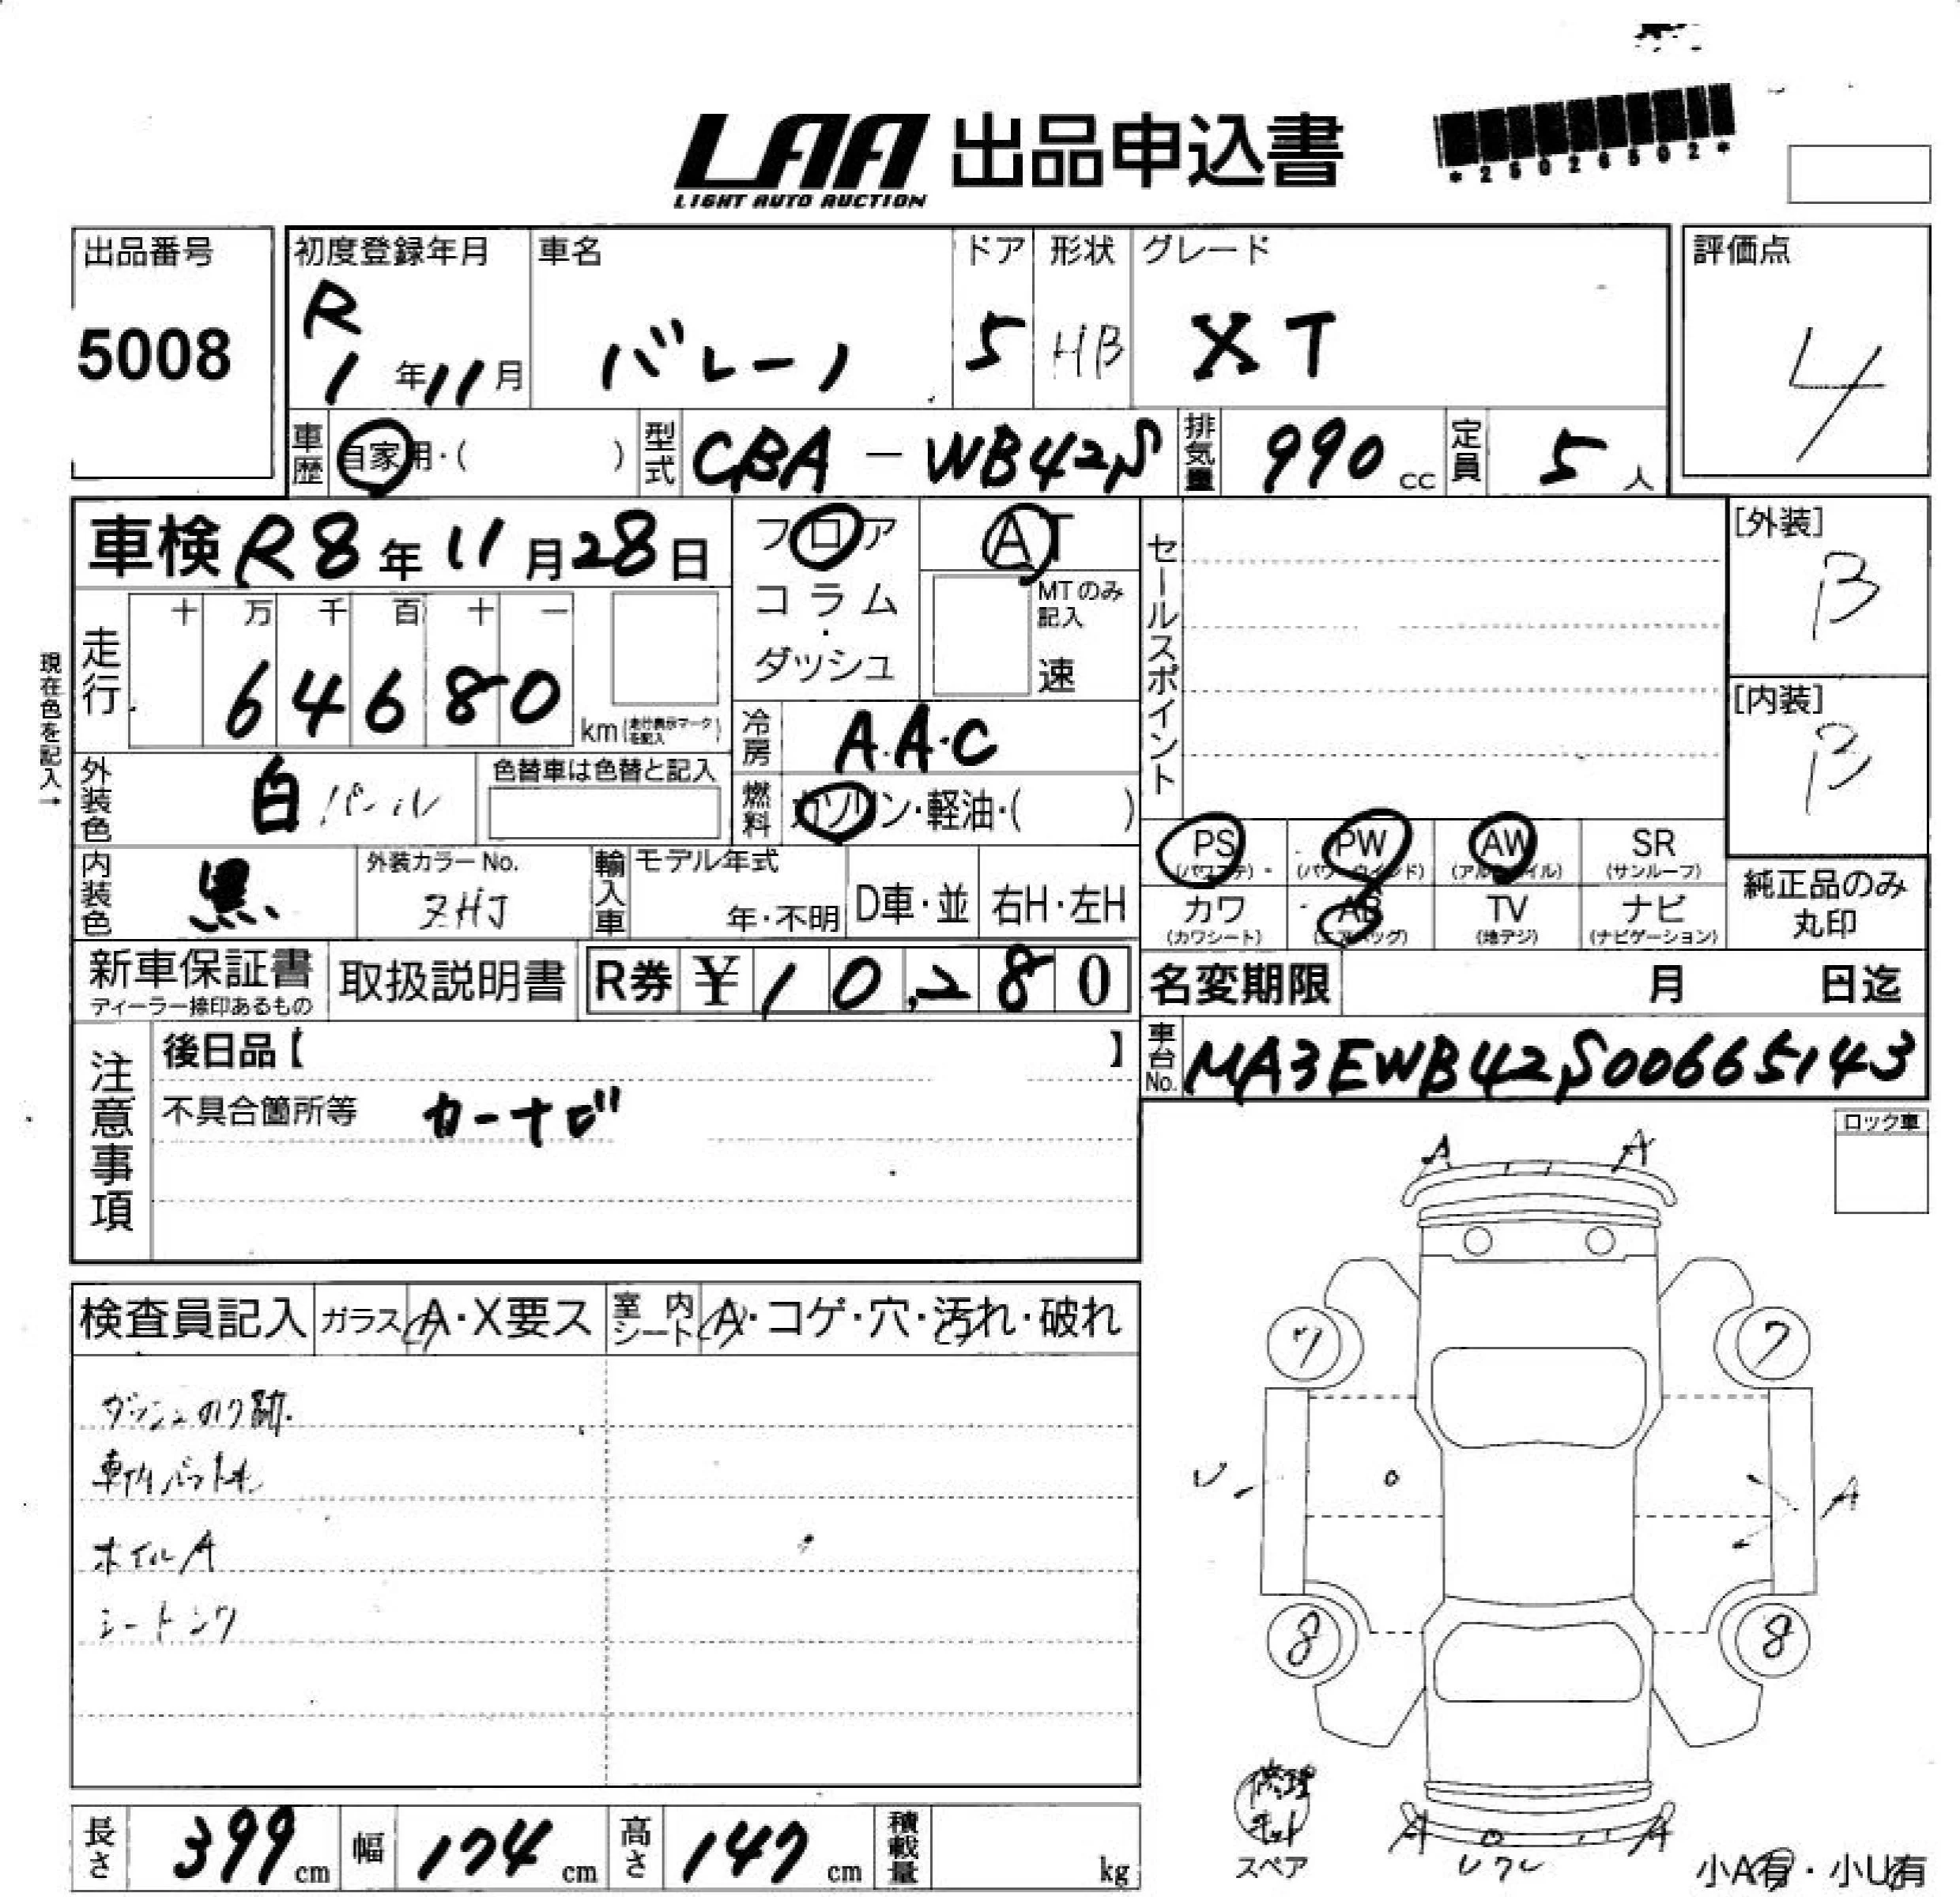 LAA 出品申込書
LIGHT AUTO AUCTION
*25026502*
出品番号
5008
初度登録年月
R
1 年 11 月
車名
バレーノ
ドア
5
形状
HB
グレード
XT
評価点
4
車歴
自家用・( )
型式
CBA - WB42S
排気量
990 cc
定員
5 人
車検 R8 年 11 月 28 日
フロア
コラム
・
ダッシュ
AT
MTのみ
記入
速
セールスポイント
[外装]
B
[内装]
B
現在色を記入→
走行
十 万 千 百 十 一
6 4 6 8 0
km(走行表示マークを記入)
冷房
A.A.C
外装色
白パール
色替車は色替と記入
燃料
ガソリン・軽油・( )
内装色
黒
外装カラーNo.
ZHJ
輸入車
モデル年式
年・不明
D車・並
右H・左H
PS
(パワステ)
PW
(パワーウインド)
AW
(アルミホイル)
SR
(サンルーフ)
カワ
(カワシート)
AB
(エアバッグ)
TV
(地デジ)
ナビ
(ナビゲーション)
純正品のみ
丸印
新車保証書
ディーラー捺印あるもの
取扱説明書
R券 ¥ 10,280
名変期限 月 日迄
車台No.
MA3EWB42S00665143
注意事項
後日品【 】
不具合箇所等 カーナビ
ロック車
A A
検査員記入
ガラス
A・X要ス
室内シート
A・コゲ・穴・汚れ・破れ
7 7
ダッシュのり跡.
ホイルA
A
8 8
修理
キット
スペア
A A
小A有・小U有
長さ
399 cm
幅
174 cm
高さ
147 cm
積載量
kg